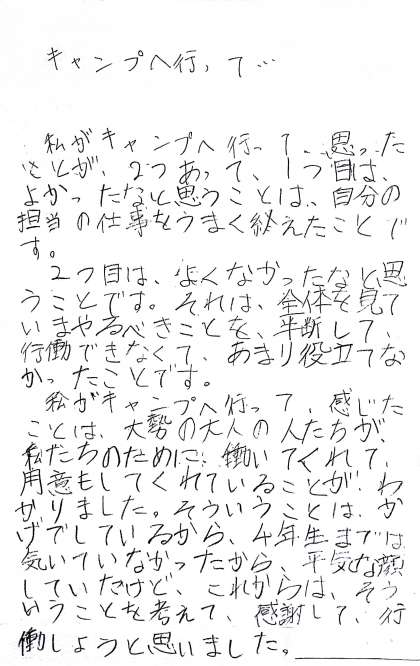 キャンプへ行って…
私がキャンプへ行って、思った
ことが、2つあって、1つ目は、
よかったなと思うことは、自分の
担当の仕事をうまく終えたことで
す。
2つ目は、よくなかったなと思
うことです。それは、全体を見て
いまやるべきことを、半断して、
行働できなくて、あまり役立てな
かったことです。
私がキャンプへ行って、感じた
ことは、大勢の大人の人たちが、
私たちのために、働いてくれて、
用意もしてくれていることが、わ
かりました。そういうことは、か
げでしているから、4年生までは
気いていなかったから、平気な顔
していたけど、これからは、そう
いうことを考えて、感謝して、行
働しようと思いました。